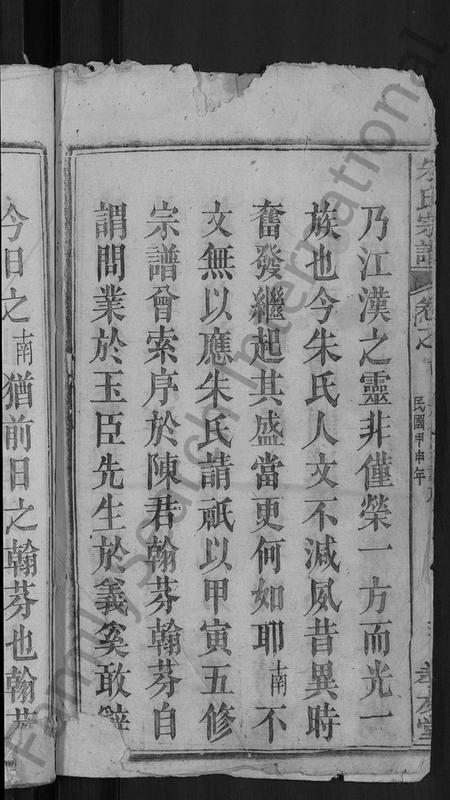 朱氏宗譜
卷之
民國甲申年
乃江漢之靈非僅榮一方而光一
族也今朱氏人文不減夙昔異時
奮發繼起其盛當更何如耶南不
文無以應朱氏請祇以甲寅五修
宗譜曾索序於陳君翰芬翰芬自
謂問業於玉臣先生於義奚敢辭
今日之南猶前日之翰芬也翰芬
Family Search International